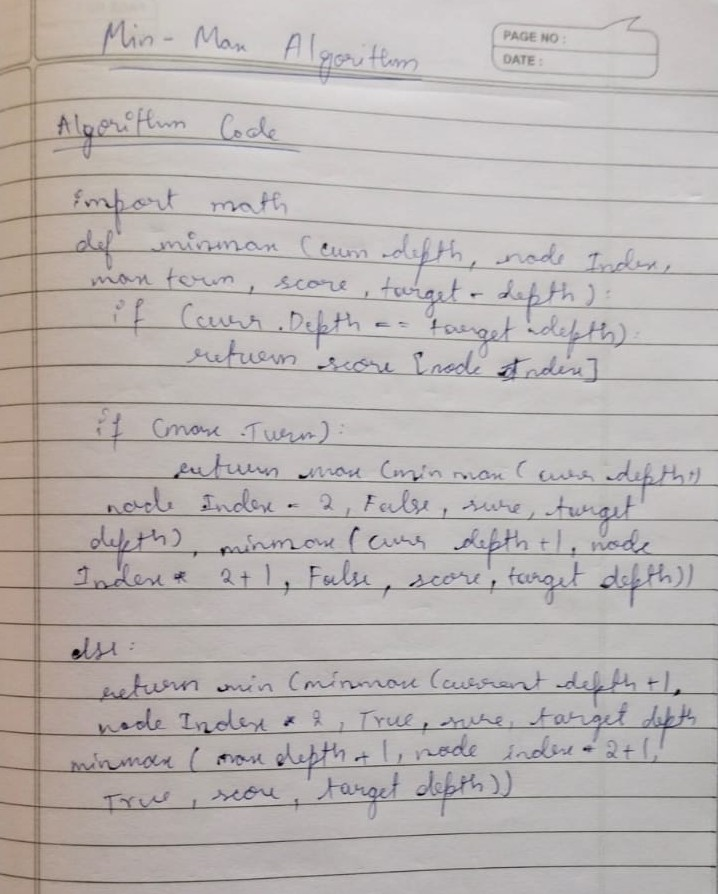 Min - Max Algorithm
PAGE NO :
DATE :
Algorithm Code
import math
def minmax (curr depth, node Index,
max turn, score, target - depth):
if (curr. Depth == target depth):
return score [node Index]
if (max Turn):
return max (min max ( curr depth+1
node Index - 2, False, sure, target
depth), minmax ( curr depth +1, node
Index * 2+1, False, score, target depth))
else:
return min (minmax (current depth +1,
node Index * 2, True, sure, target depth
minmax ( max depth + 1, node index * 2+1,
True, score, target depth))